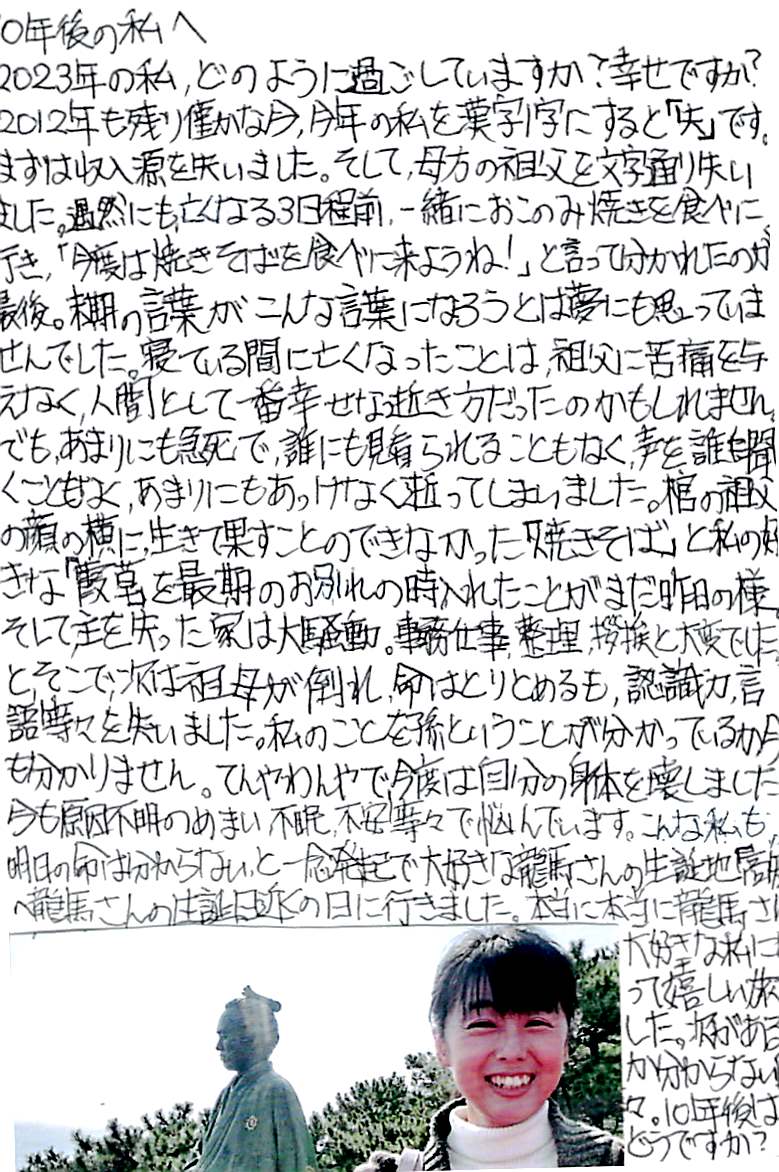 0年後の私へ
2023年の私,どのように過ごしていますか？幸せですか？
2012年も残り僅かな今,今年の私を漢字1字にすると「失」です。
まずは収入源を失いました。そして,母方の祖父を文字通り失い
ました。偶然にも,亡くなる3日程前,一緒におこのみ焼きを食べに
行き,「今度は焼きそばを食べに来ようね！」と言って分かれたのが
最後。末期の言葉がこんな言葉になろうとは夢にも思っていま
せんでした。寝ている間に亡くなったことは,祖父に苦痛を与
えなく,人間として一番幸せな逝き方だったのかもしれません。
でも,あまりにも急死で,誰にも見看られることもなく,声を誰も聞
くこともなく,あまりにもあっけなく逝ってしまいました。棺の祖父
の顔の横に,生きて果すことのできなかった「焼きそば」と私の好
きな「霞草」を最期のお別れの時入れたことがまだ昨日の様
そして,主を失った家は大騒動。事務仕事,整理,挨拶と大変でした。
と,そこで,次は祖母が倒れ,命はとりとめるも,認識力,言
語等々を失いました。私のことを孫ということが分かっているか今
も分かりません。てんやわんやで,今度は自分の身体を壊しました
今も原因不明のめまい,不眠,不安等々で悩んでいます。こんな私も,
明日の命は分からない,と一念発起で大好きな龍馬さんの生誕地高知
へ龍馬さんの生誕日近くの日に行きました。本当に本当に龍馬さん
大好きな私に
って嬉しい旅
した。次がある
か分からない
々。10年後は
どうですか？